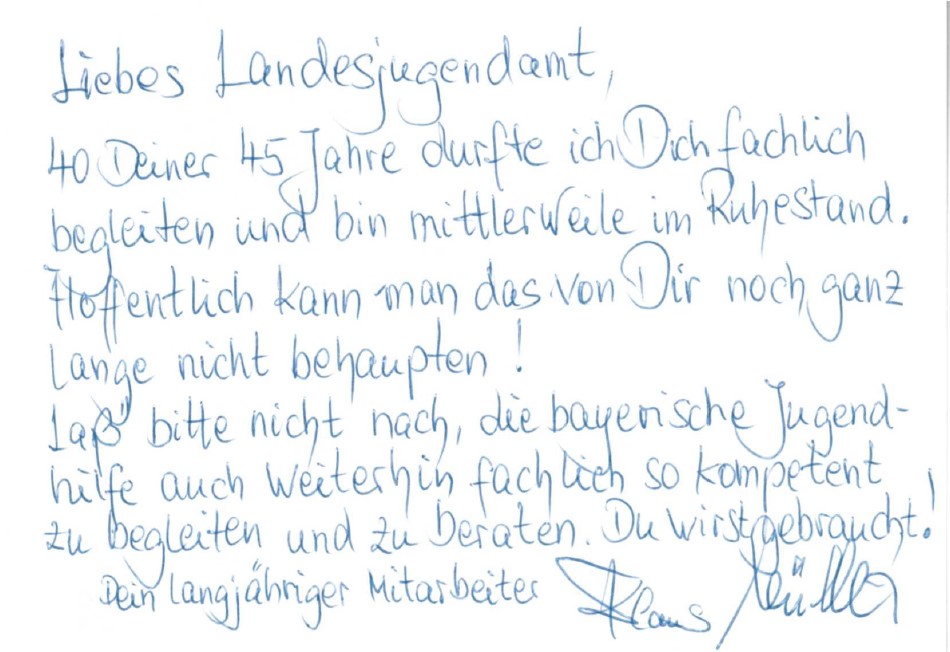 Liebes Landesjugendamt,
40 Deiner 45 Jahre durfte ich Dich fachlich
begleiten und bin mittlerweile im Ruhestand.
Hoffentlich kann man das von Dir noch ganz
lange nicht behaupten!
Laß bitte nicht nach, die bayerische Jugend-
hilfe auch weiterhin fachlich so kompetent
zu begleiten und zu beraten. Du wirst gebraucht!
Dein langjähriger Mitarbeiter Klaus Müller